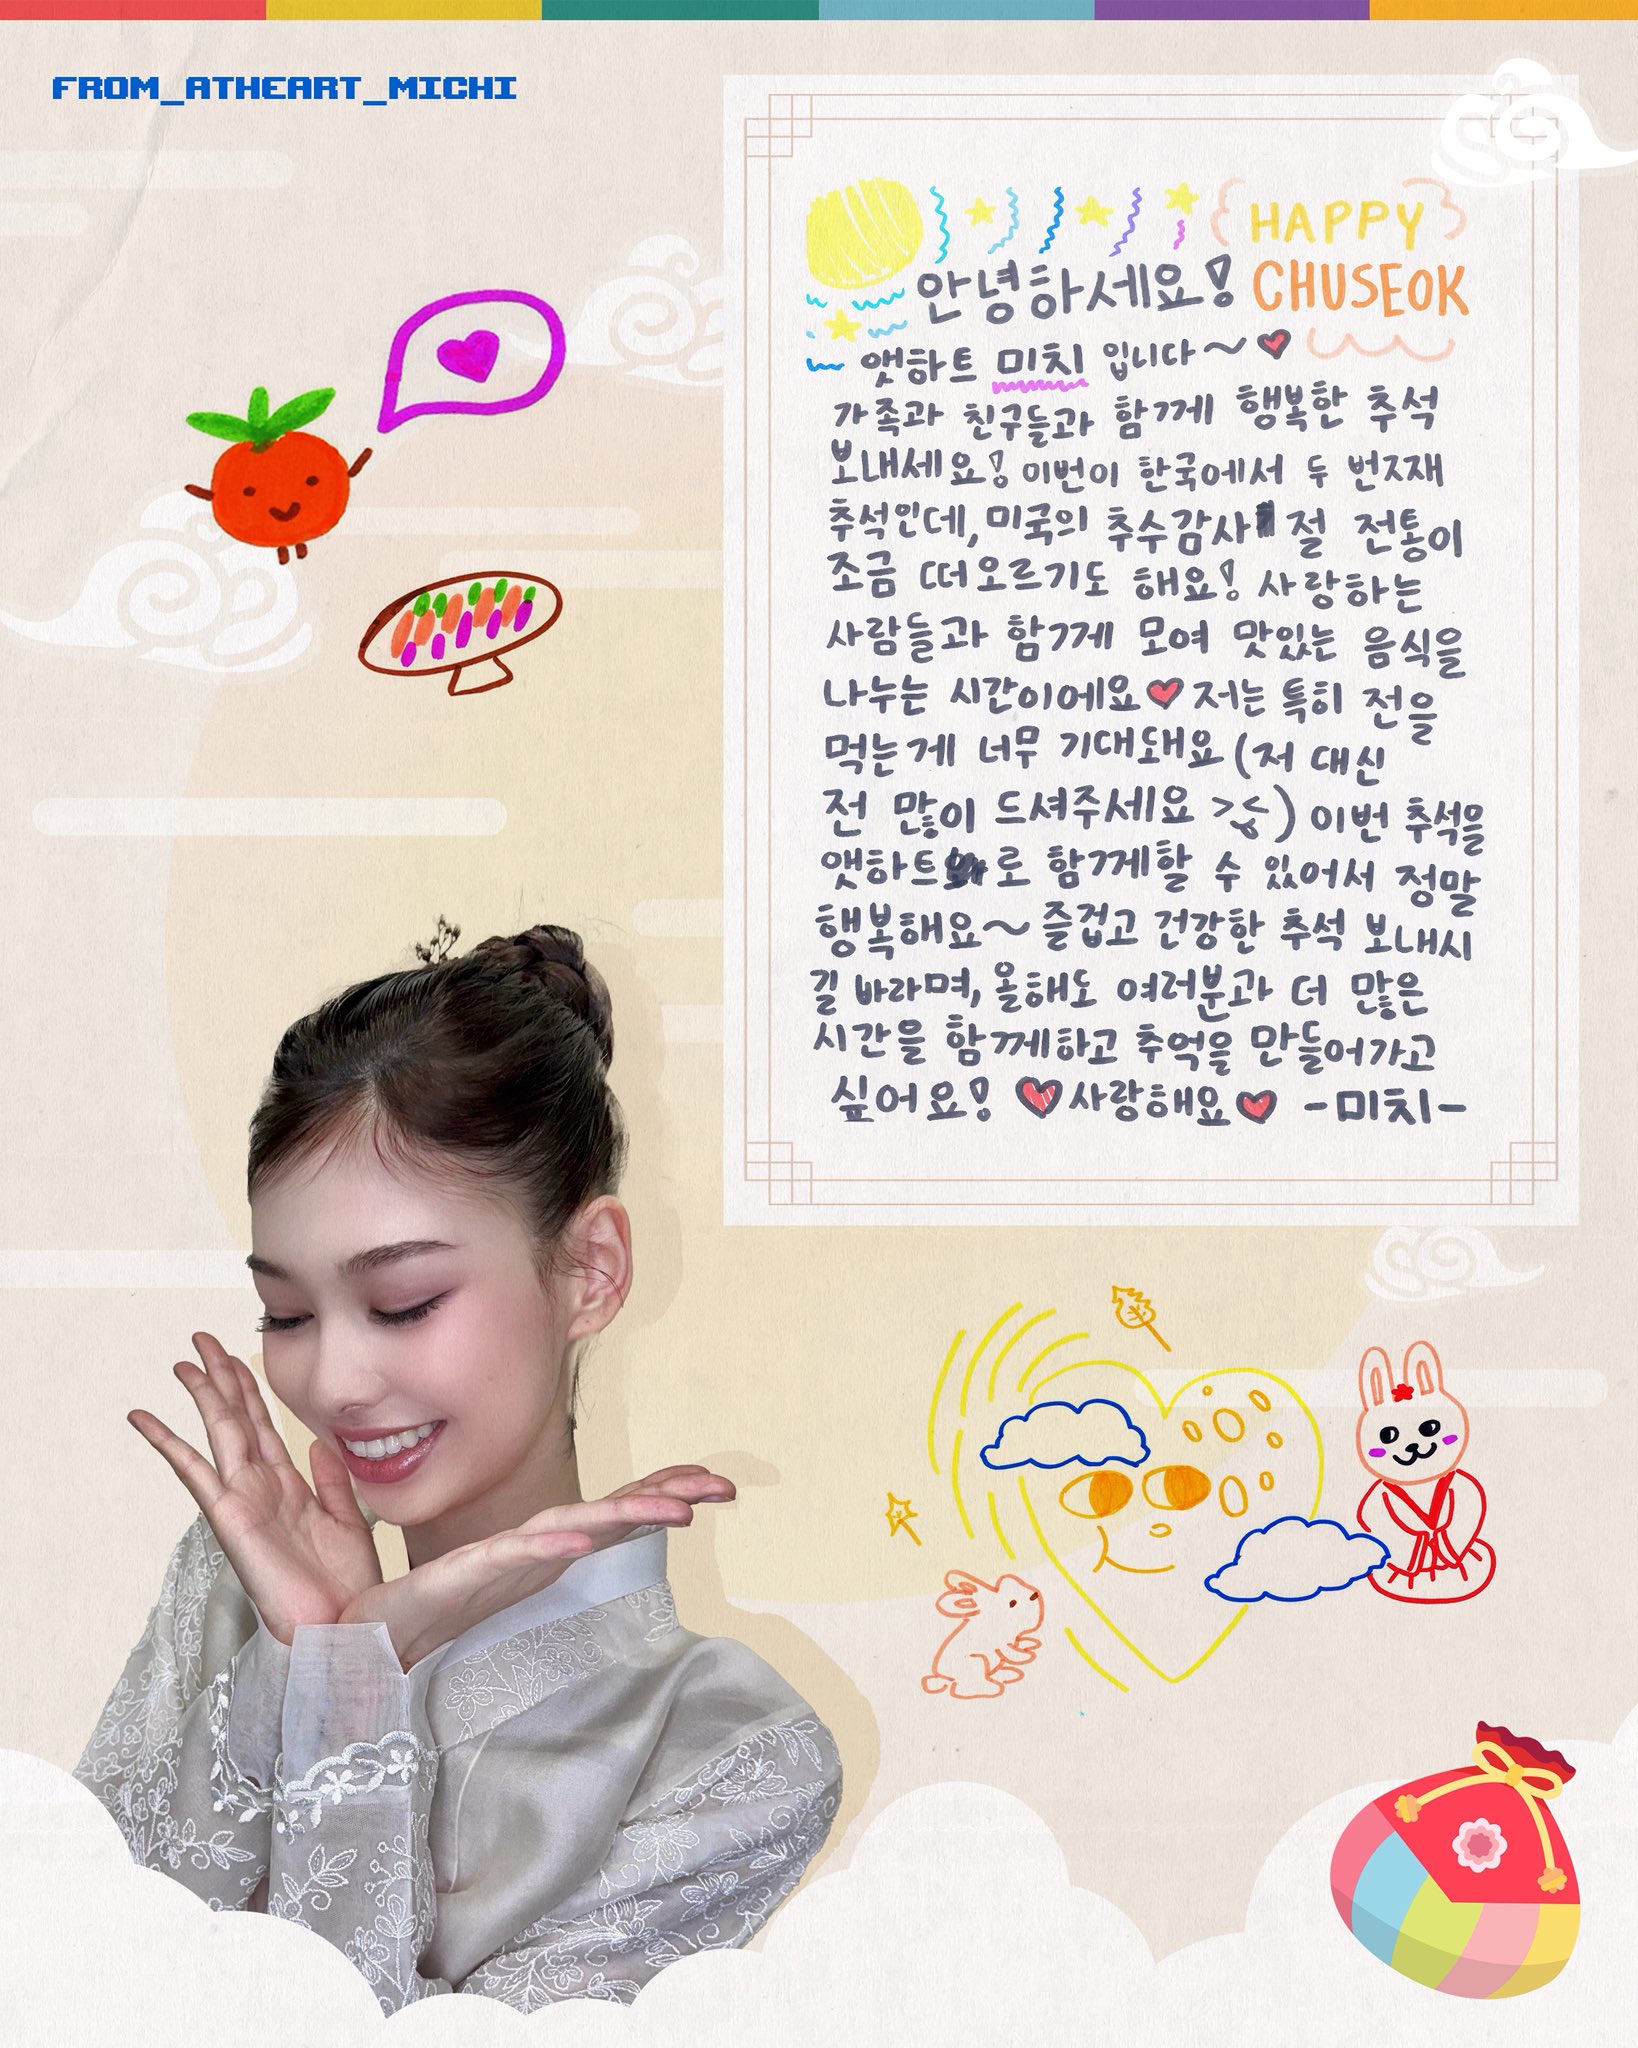 FROM_ATHEART_MICHI
HAPPY
CHUSEOK
안녕하세요!
앳하트 미치 입니다~
가족과 친구들과 함께 행복한 추석
보내세요! 이번이 한국에서 두 번째
추석인데, 미국의 추수감사 절 전통이
조금 떠오르기도 해요! 사랑하는
사람들과 함께 모여 맛있는 음식을
나누는 시간이에요♥ 저는 특히 전을
먹는게 너무 기대돼요 (저 대신
전 많이 드셔주세요 >_<) 이번 추석을
앳하트 로 함께할 수 있어서 정말
행복해요~ 즐겁고 건강한 추석 보내시
길 바라며, 올해도 여러분과 더 많은
시간을 함께하고 추억을 만들어가고
싶어요! ♥사랑해요♥ -미치-